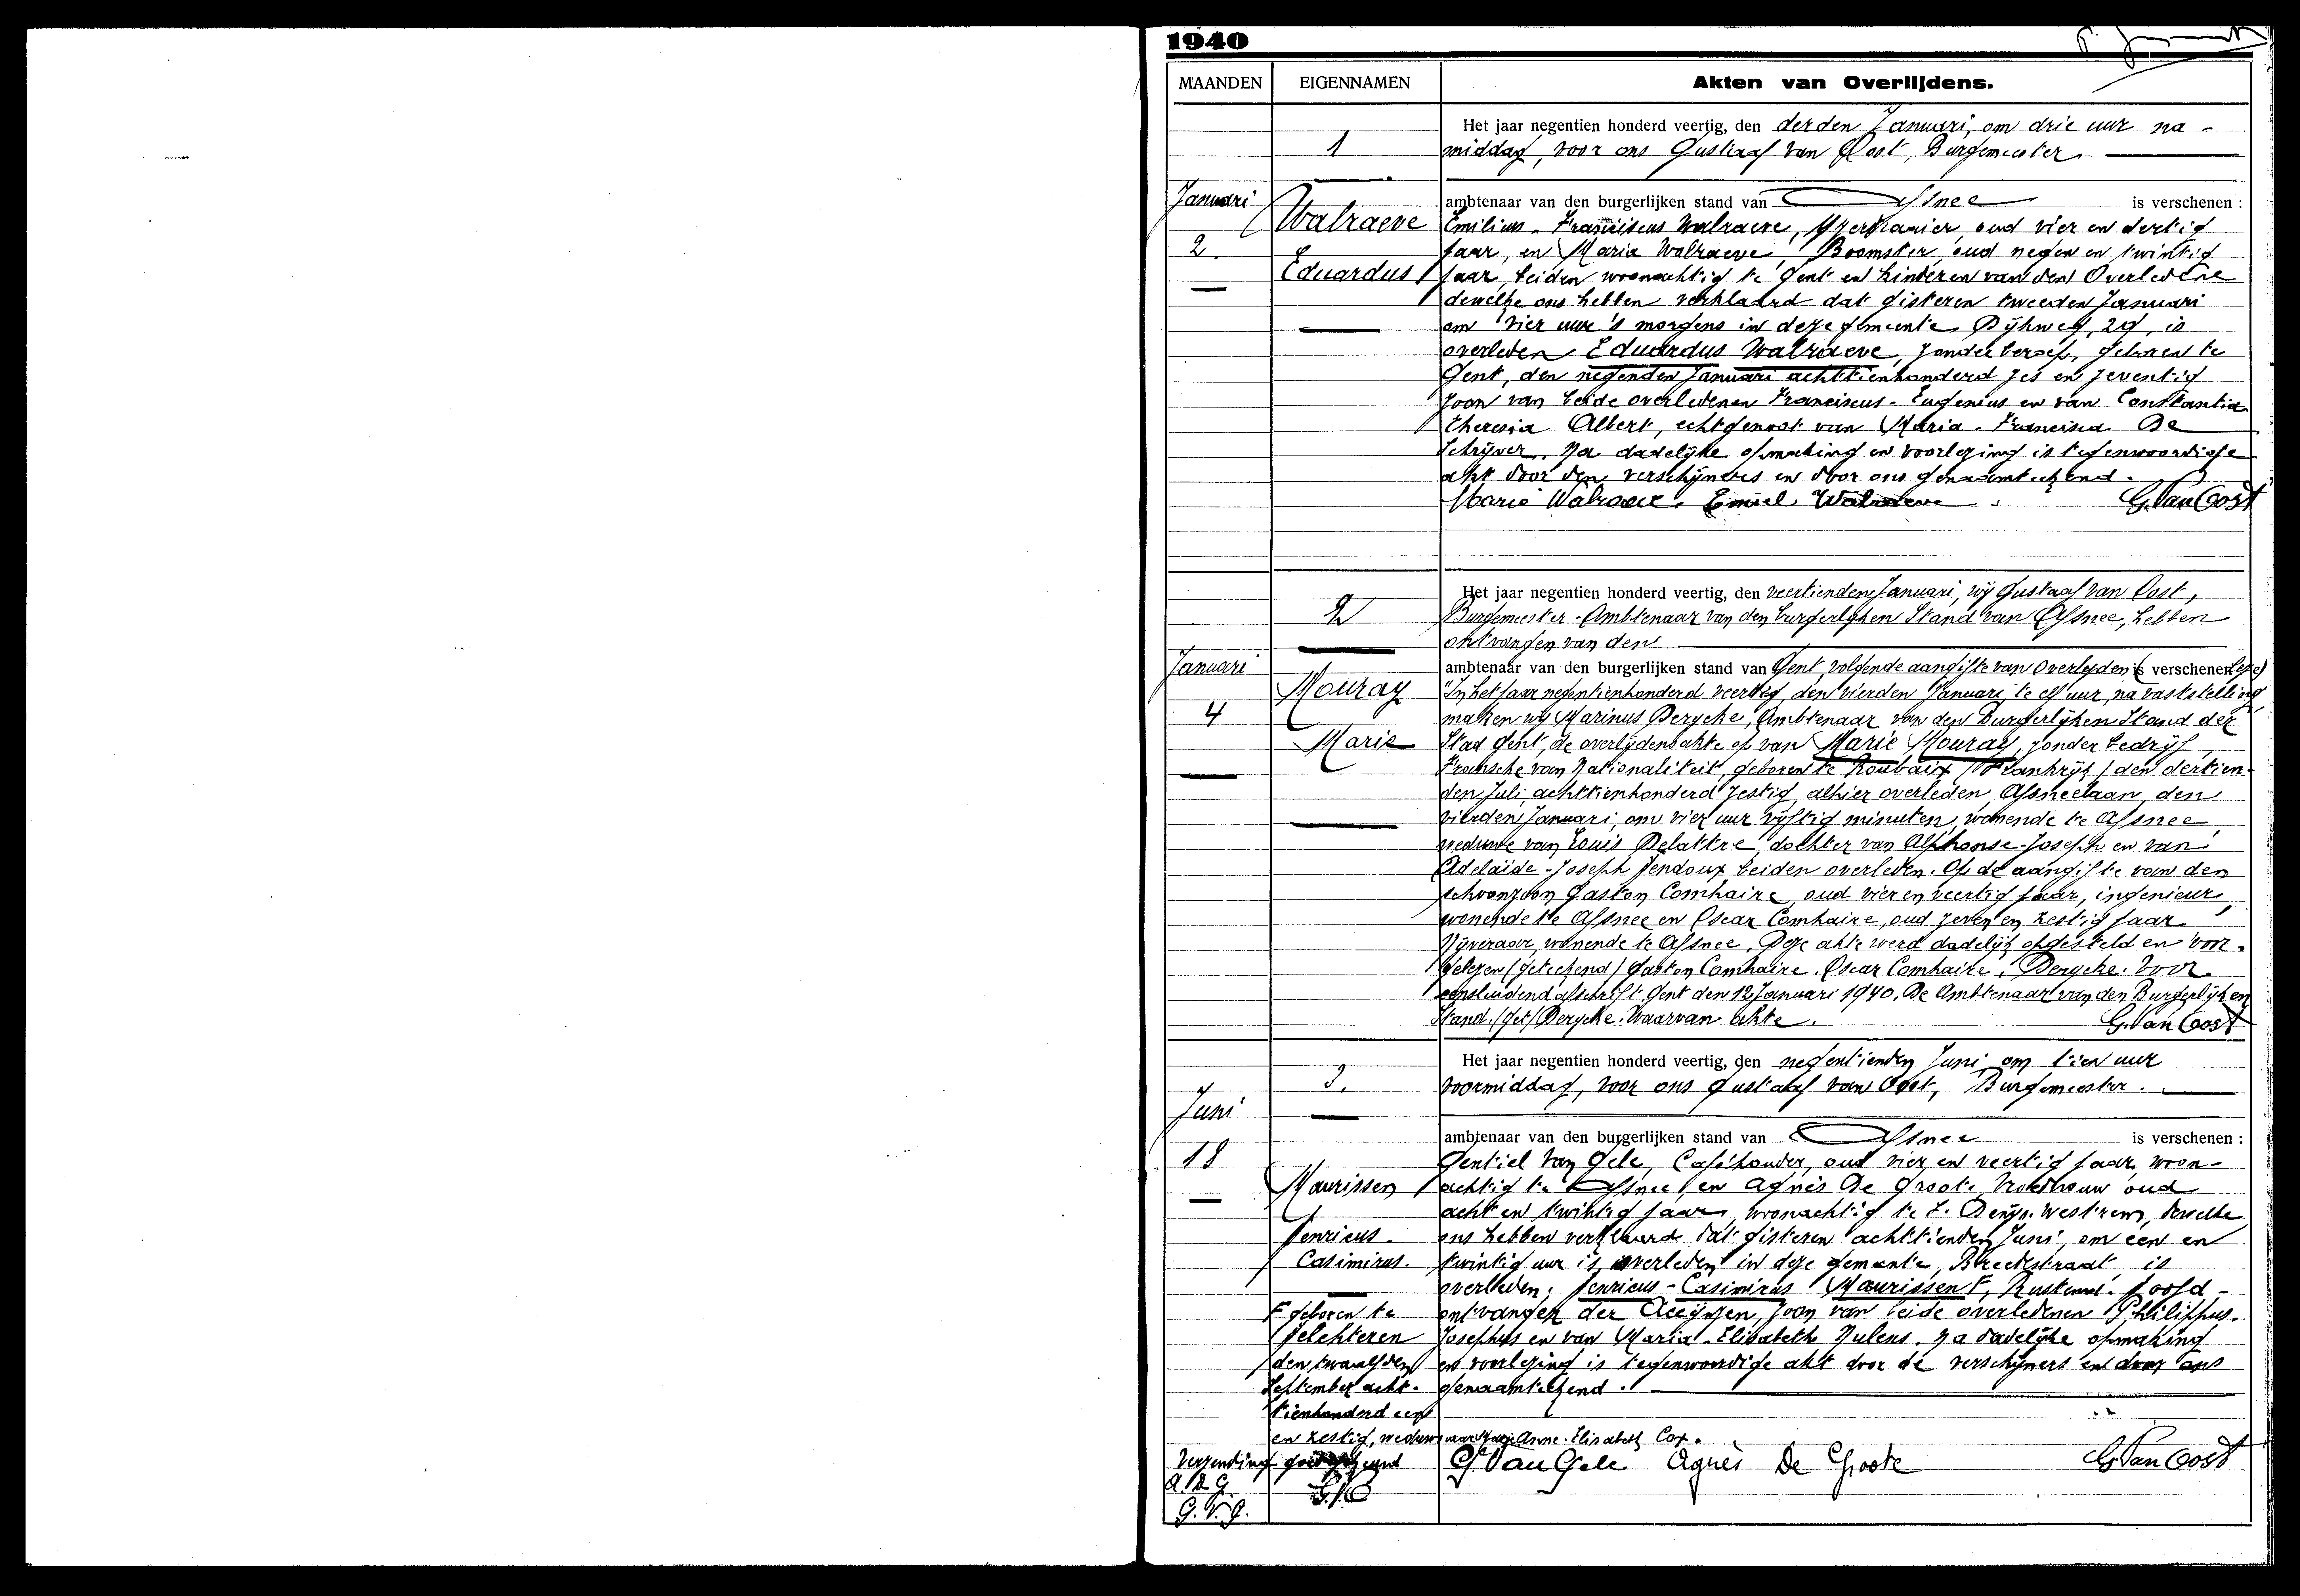 1940
MAANDEN EIGENNAMEN Akten van Overlijdens.
1
Januari
2.
Walraeve
Eduardus
Het jaar negentien honderd veertig, den derden Januari, om drie uur na-
middag, voor ons Gustaaf Van Oost, Burgemeester.
ambtenaar van den burgerlijken stand van Afsnee is verschenen :
Emilius-Franciscus Walraeve, oud vier en dertig
jaar, en Maria Walraeve, oud negen en twintig
jaar, beiden woonachtig te Gent en kinderen van den Overledene
dewelke ons hebben verklaard dat gisteren tweeden Januari
om vier uur 's morgens in deze gemeente, 29, is
overleden Eduardus Walraeve, zonder beroep, geboren te
Gent, den negenden Januari achttienhonderd zes en zeventig
zoon van beide overledenen Franciscus-Eugenius en van Constantia
Theresia Albert, echtgenoot van Maria-Francisca De
Schrijver. Na dadelijke opmaking en voorlezing is tegenwoordige
akt door den verschijners en door ons genaamteekend.
Marie Walraeve. Emiel Walraeve. G. Van Oost
2
Januari
4
Mouray
Marie
Het jaar negentien honderd veertig, den veertienden Januari, wij Gustaaf Van Oost,
Burgemeester-Ambtenaar van den burgerlijken Stand van Afsnee, hebben
ontvangen van den
ambtenaar van den burgerlijken stand van Gent, volgende aangifte van Overlyden is verschenen
"In het jaar negentienhonderd veertig, den vierden Januari, te elf uur, na vaststelling
maken wij Marinus Derycke, Ambtenaar van den Burgerlijken Stand der
Stad Gent, de overlijdensakte op van Marie Mouray, zonder bedrijf,
Fransche van Nationaliteit, geboren te Roubaix (Frankrijk) den dertien-
den Juli, achttienhonderd zestig, alhier overleden, Afsneelaan, den
vierden Januari, om vier uur vijftig minuten, wonende te Afsnee,
weduwe van Louis Delattre, dochter van Alphonse-Joseph en van
Adelaïde-Joseph beiden overleden. Op de aangifte van den
schoonzoon Gaston Comhaire, oud vier en veertig jaar, ingenieur,
wonende te Afsnee en Oscar Comhaire, oud zeven en zestig jaar
Nijveraar, wonende te Afsnee. Deze akte werd dadelijk opgesteld en voor-
gelezen (geteekend) Gaston Comhaire. Oscar Comhaire. Derycke. Voor
eensluidend afschrift Gent den 12 Januari 1940. De Ambtenaar van den Burgerlijken
Stand. (get) Derycke. Waarvan akte. G. Van Oost
3.
Juni
18
Maurissen
Henricus-
Casimirus.
Het jaar negentien honderd veertig, den negentienden Juni om tien uur
voormiddag, voor ons Gustaaf Van Oost, Burgemeester.
ambtenaar van den burgerlijken stand van Afsnee is verschenen :
Gentiel Van Gele, Caféhouder, oud vier en veertig jaar, woon-
achtig te Afsnee, en Agnès De Groote, Vroedvrouw oud
acht en twintig jaar, woonachtig te St. Denijs-Westrem, dewelke
ons hebben verklaard dat gisteren achttienden Juni, om een en
twintig uur is overleden in deze gemeente, Broekstraat, is
overleden, Henricus-Casimirus Maurissen F, Rustend Hoofd-
ontvanger der Accijnzen, zoon van beide overledenen Philippus-
Josephus en van Maria-Elisabeth Nulens. Na dadelijke opmaking
en voorlezing is tegenwoordige akt door de verschijners en door ons
genaamteekend.
F geboren te
Helchteren
den twaalfden
September acht-
tienhonderd een
en zestig, weduwnaar van Anne-Elisabeth Cox.
Verzending goedgekeurd
A. D. G.
G. V. G.
G. V. O
G. Van Gele Agnès De Groote G. Van Oost